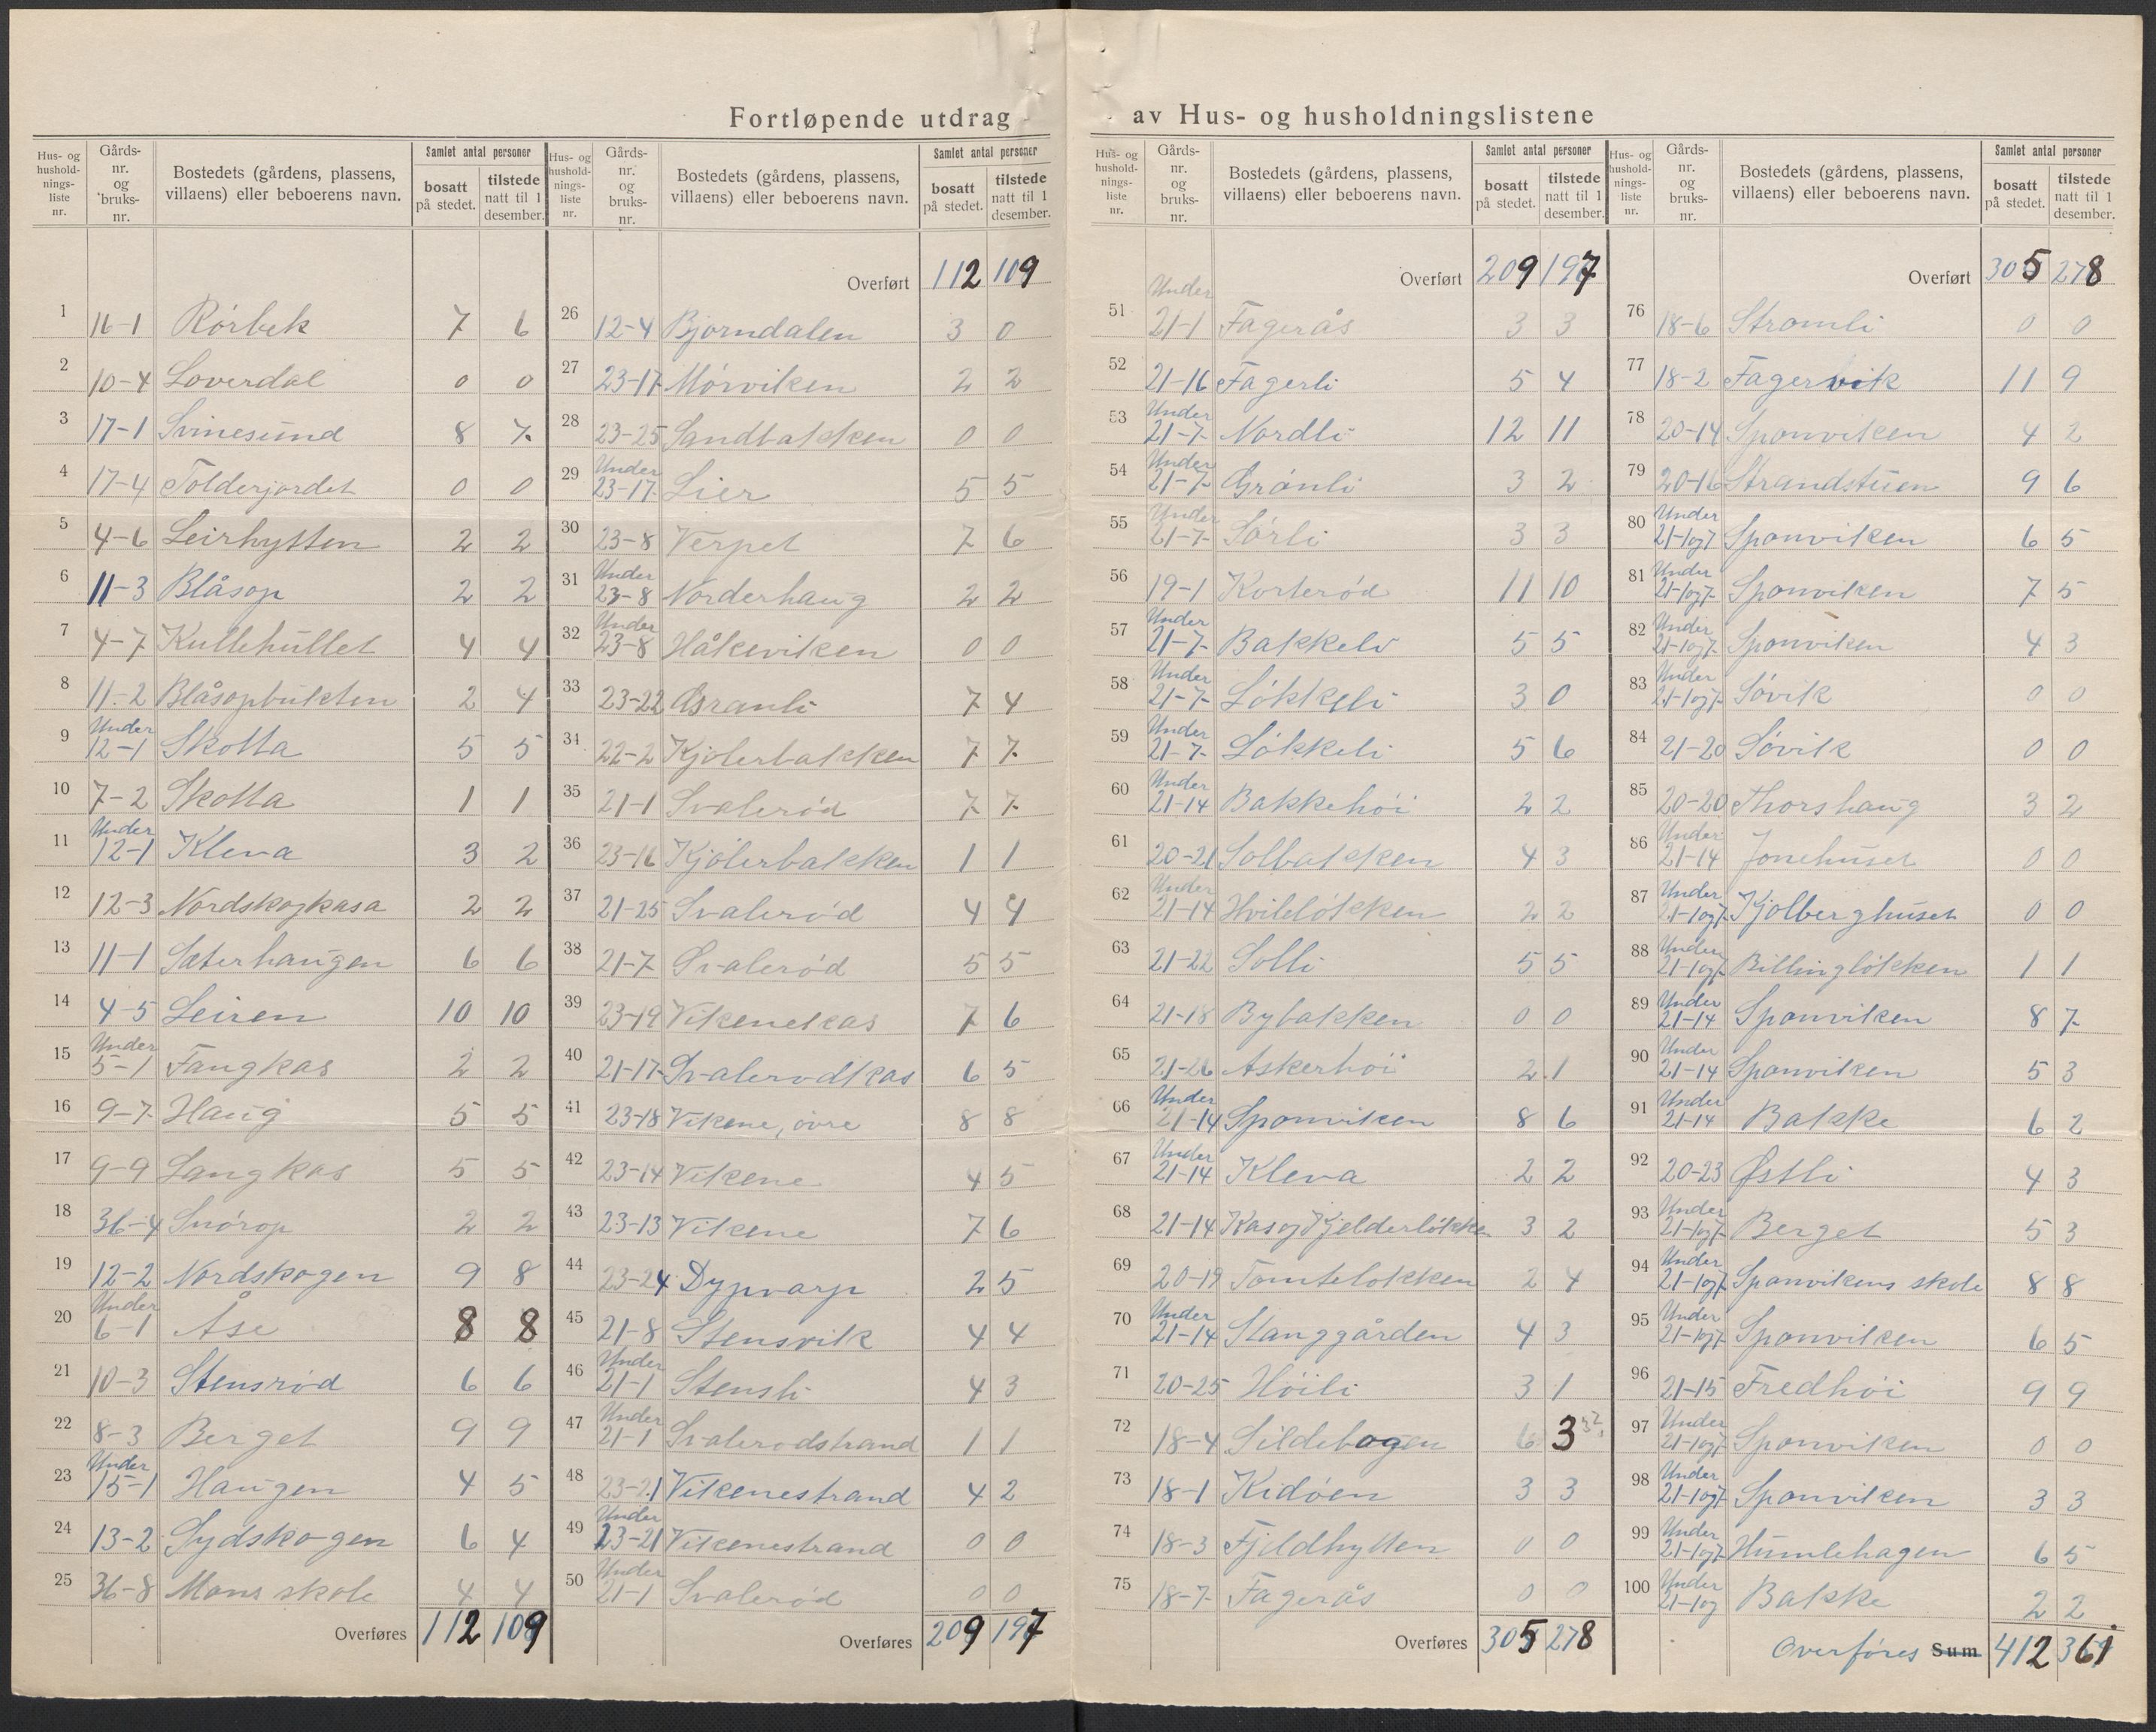 Fortløpende utdrag av Hus- og husholdningslistene
Hus- og hushold- nings- liste nr. | Gårds- nr. og bruks- nr. | Bostedets (gårdens, plassens, villaens) eller beboerens navn. | Samlet antal personer: bosatt på stedet. | tilstede natt til 1 desember.
1 16-1 Rörbek 7 6
2 10-4 Loverdal 0 0
3 17-1 Svinesund 8 7
4 17-4 Tolderjordet 0 0
5 4-6 Leirhytten 2 2
6 11-3 Blåsop 2 2
7 4-7 Kullehullet 4 4
8 11-2 Blåsopbukten 2 4
9 Under 12-1 Skotta 5 5
10 7-2 Skotta 1 1
11 Under 12-1 Kleva 3 2
12 12-3 Nordskogkasa 2 2
13 11-1 Sæterhaugen 6 6
14 4-5 Leiren 10 10
15 Under 5-1 Fangkas 2 2
16 9-7 Haug 5 5
17 9-9 Langkas 5 5
18 36-4 Snörop 2 2
19 12-2 Nordskogen 9 8
20 Under 6-1 Åse 8 8
21 10-3 Stensröd 6 6
22 8-3 Berget 9 9
23 Under 15-1 Haugen 4 5
24 13-2 Sydskogen 6 4
25 36-8 Mons skole 4 4
Overføres 112 109
Hus- og hushold- nings- liste nr. | Gårds- nr. og bruks- nr. | Bostedets (gårdens, plassens, villaens) eller beboerens navn. | Samlet antal personer: bosatt på stedet. | tilstede natt til 1 desember.
Overført 112 109
26 12-4 Bjorndalen 3 0
27 23-17 Mörviken 2 2
28 23-25 Sandbakken 0 0
29 Under 23-17 Lier 5 5
30 23-8 Verpet 7 6
31 Under 23-8 Norderhaug 2 2
32 Under 23-8 Håkeviken 0 0
33 23-22 Granli 7 4
34 22-2 Kjölerbakken 7 7
35 21-1 Svaleröd 7 7
36 23-16 Kjölerbakken 1 1
37 21-25 Svaleröd 4 4
38 21-7 Svaleröd 5 5
39 23-19 Vikenekas 7 6
40 21-17 Svalerödkas 6 5
41 23-18 Vikene, övre 8 8
42 23-14 Vikene 4 5
43 23-13 Vikene 7 6
44 23-24 Dypvarp 2 5
45 21-8 Stensvik 4 4
46 Under 21-1 Stensli 4 3
47 Under 21-1 Svalerodstrand 1 1
48 23-21 Vikenestrand 4 2
49 Under 23-21 Vikenestrand 0 0
50 Under 21-1 Svaleröd 0 0
Overføres 209 197
Hus- og hushold- nings- liste nr. | Gårds- nr. og bruks- nr. | Bostedets (gårdens, plassens, villaens) eller beboerens navn. | Samlet antal personer: bosatt på stedet. | tilstede natt til 1 desember.
Overført 209 197
51 Under 21-1 Fagerås 3 3
52 21-16 Fagerli 5 4
53 Under 21-7 Nordli 12 11
54 Under 21-7 Grönli 3 2
55 Under 21-7 Sörli 3 3
56 19-1 Korteröd 11 10
57 Under 21-7 Bakkeli 5 5
58 Under 21-7 Lökkeli 3 0
59 Under 21-7 Lökkeli 5 6
60 Under 21-14 Bakkehöi 2 2
61 20-21 Solbakken 4 3
62 Under 21-14 Hvilelökken 2 2
63 21-22 Solli 5 5
64 21-18 Bybakken 0 0
65 21-26 Askerhöi 2 1
66 Under 21-14 Sponviken 8 6
67 Under 21-14 Kleva 2 2
68 21-14 Kasog Kjelderlökken 3 2
69 20-19 Tomtelokken 2 4
70 Under 21-14 Stanggården 4 3
71 20-25 Höili 3 1
72 18-4 Sildebogen 6 3
73 18-1 Kidöen 3 3
74 18-3 Fjeldhytten 0 0
75 18-7 Fagerås 0 0
Overføres 305 278
Hus- og hushold- nings- liste nr. | Gårds- nr. og bruks- nr. | Bostedets (gårdens, plassens, villaens) eller beboerens navn. | Samlet antal personer: bosatt på stedet. | tilstede natt til 1 desember.
Overført 305 278
76 18-6 Stromli 0 0
77 18-2 Fagervik 11 9
78 20-14 Sponviken 4 2
79 20-16 Strandstuen 9 6
80 Under 21-1og7 Sponviken 6 5
81 Under 21-1og7 Sponviken 7 5
82 Under 21-1og7 Sponviken 4 3
83 Under 21-1og7 Sövik 0 0
84 21-20 Sövik 0 0
85 20-20 Thorshaug 3 2
86 Under 21-14 Jonehuset 0 0
87 Under 21-1og7 Kjolberghuset 0 0
88 Under 21-1og7 Billinglökken 1 1
89 Under 21-14 Sponviken 8 7
90 Under 21-14 Sponviken 5 3
91 Under 21-14 Bakke 6 2
92 20-23 Østli 4 3
93 Under 21-1og7 Berget 5 3
94 Under 21-1og7 Sponvikens skole 8 8
95 Under 21-1og7 Sponviken 6 5
96 21-15 Fredhöi 9 9
97 Under 21-1og7 Sponviken 0 0
98 Under 21-1og7 Sponviken 3 3
99 Under 21-1og7 Humlehagen 6 5
100 Under 21-1og Bakke 2 2
Overföres Sum 412 361